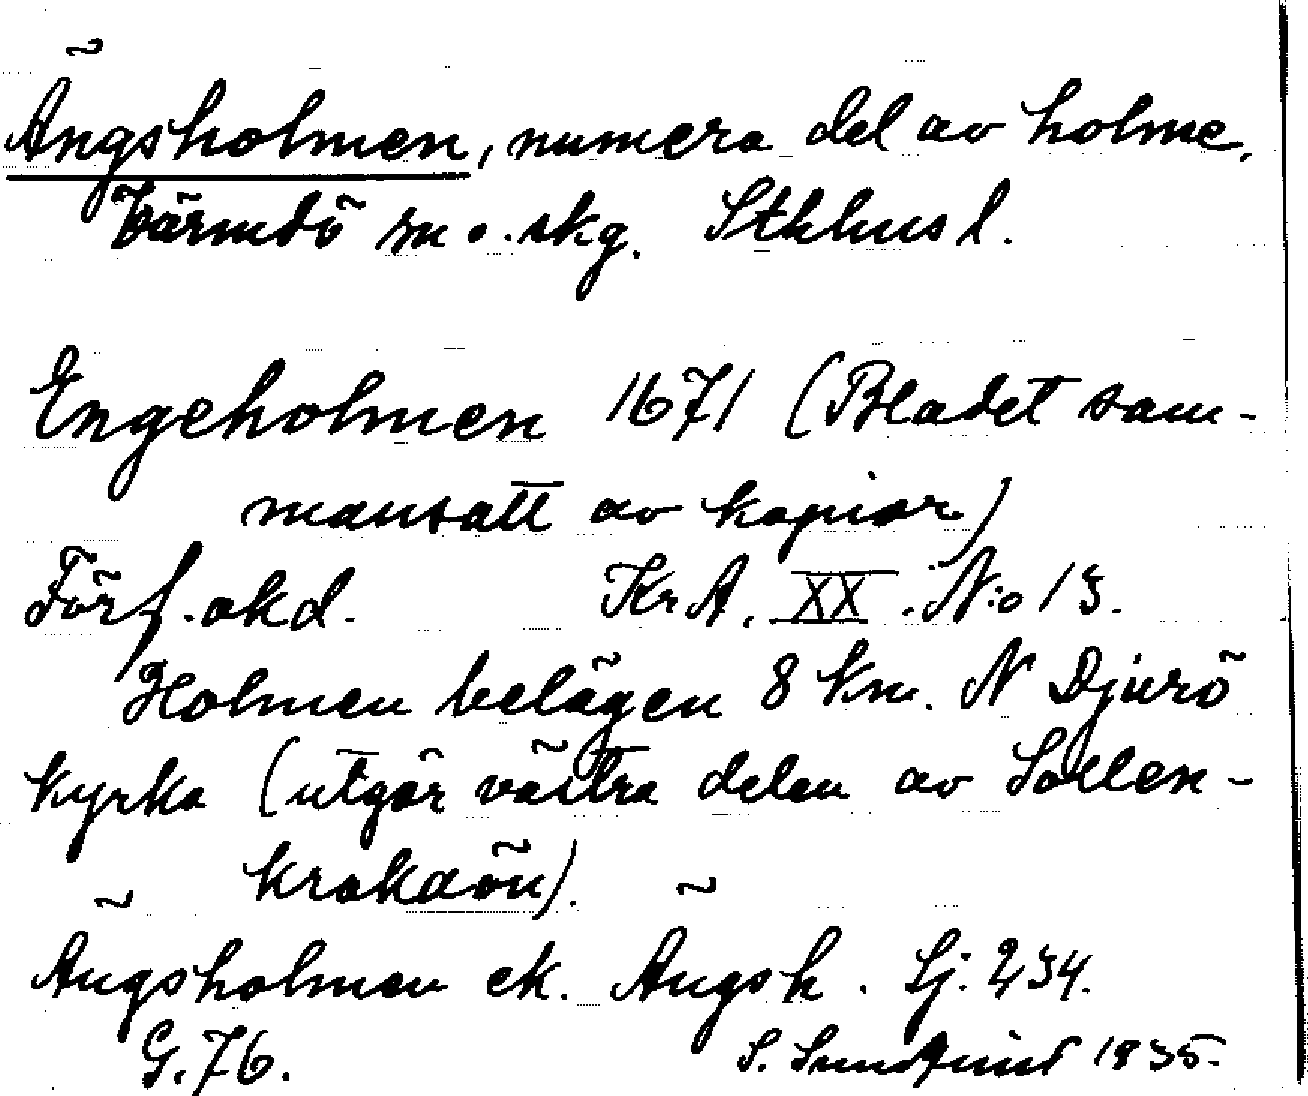 Ängsholmen, numera del av holme,
Värmdö sn o. skg. Sthlms l.
Engeholmen 1671 (Bladet sam-
mansatt av kopior)
Förf. okd. KrA. XX. N:o 13.
Holmen belägen 8 km. N Djurö
kyrka (utgör västra delen av Sollen-
krokaön).
Ängsholmen ek. Ängsh. Sj. 234.
G. 76. S. Sundqvist 1935.